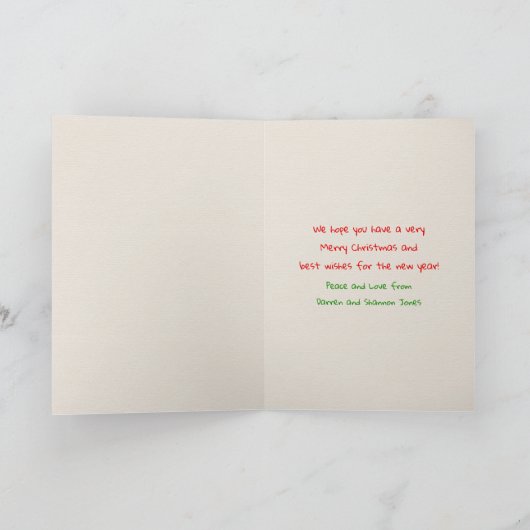 We hope you have a very
Merry Christmas and
best wishes for the new year!
Peace and Love from
Darren and Shannon Jones